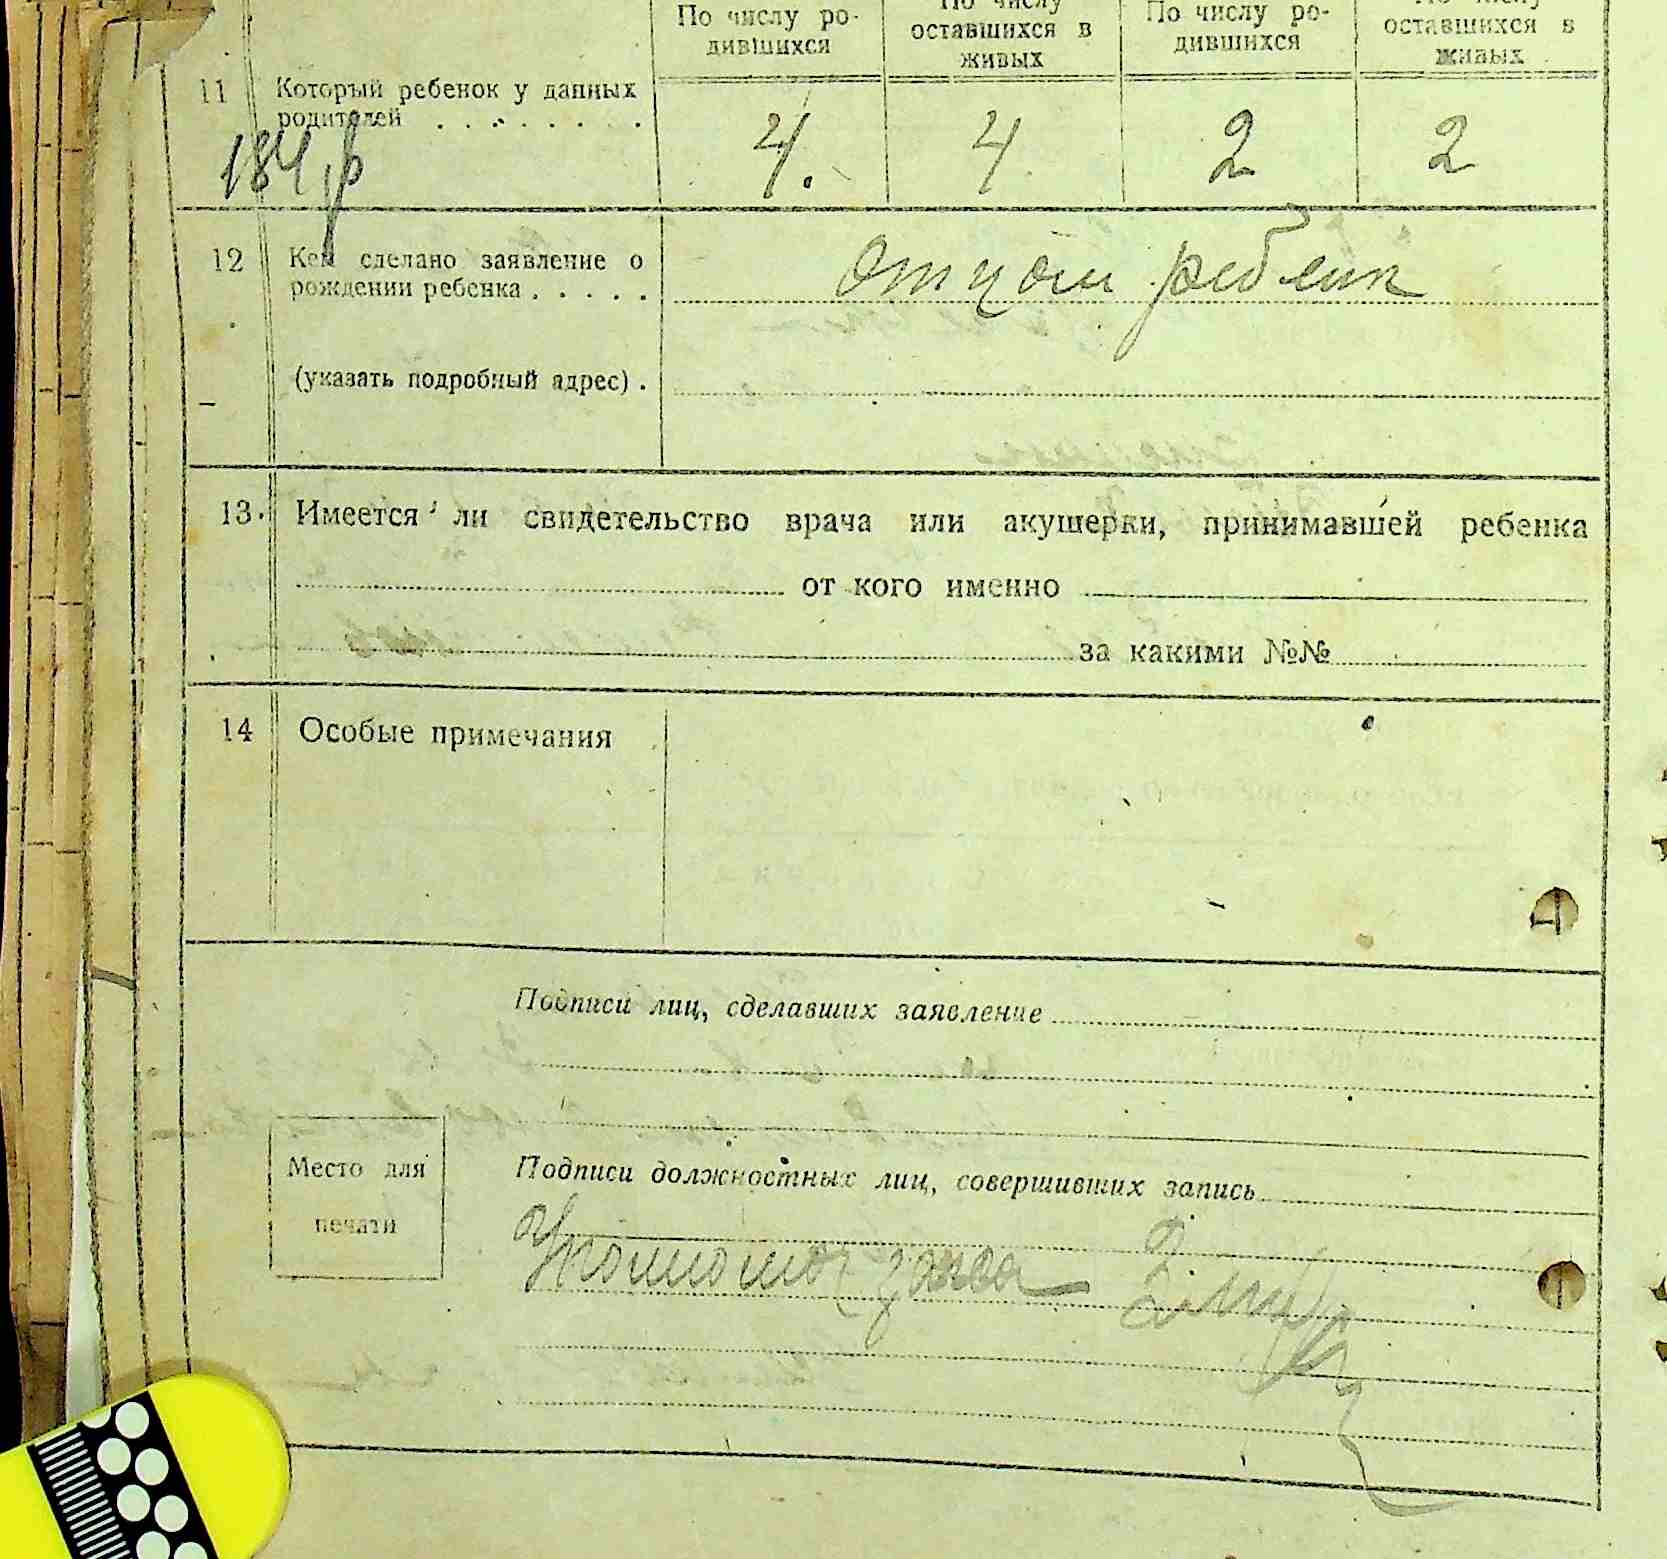 По числу ро-
дившихся
По числу
оставшихся в
живых
По числу ро-
дившихся
оставшихся в
живых
11 Который ребенок у данных
родителей . . . . . . . .
4. 4 2 2
12 Кем сделано заявление о
рождении ребенка . . . . .
отцом ребенк
(указать подробный адрес) .
13. Имеется ли свидетельство врача или акушерки, принимавшей ребенка
от кого именно
за какими №№
14 Особые примечания
Подписи лиц, сделавших заявление
Место для
печати
Подписи должностных лиц, совершивших запись